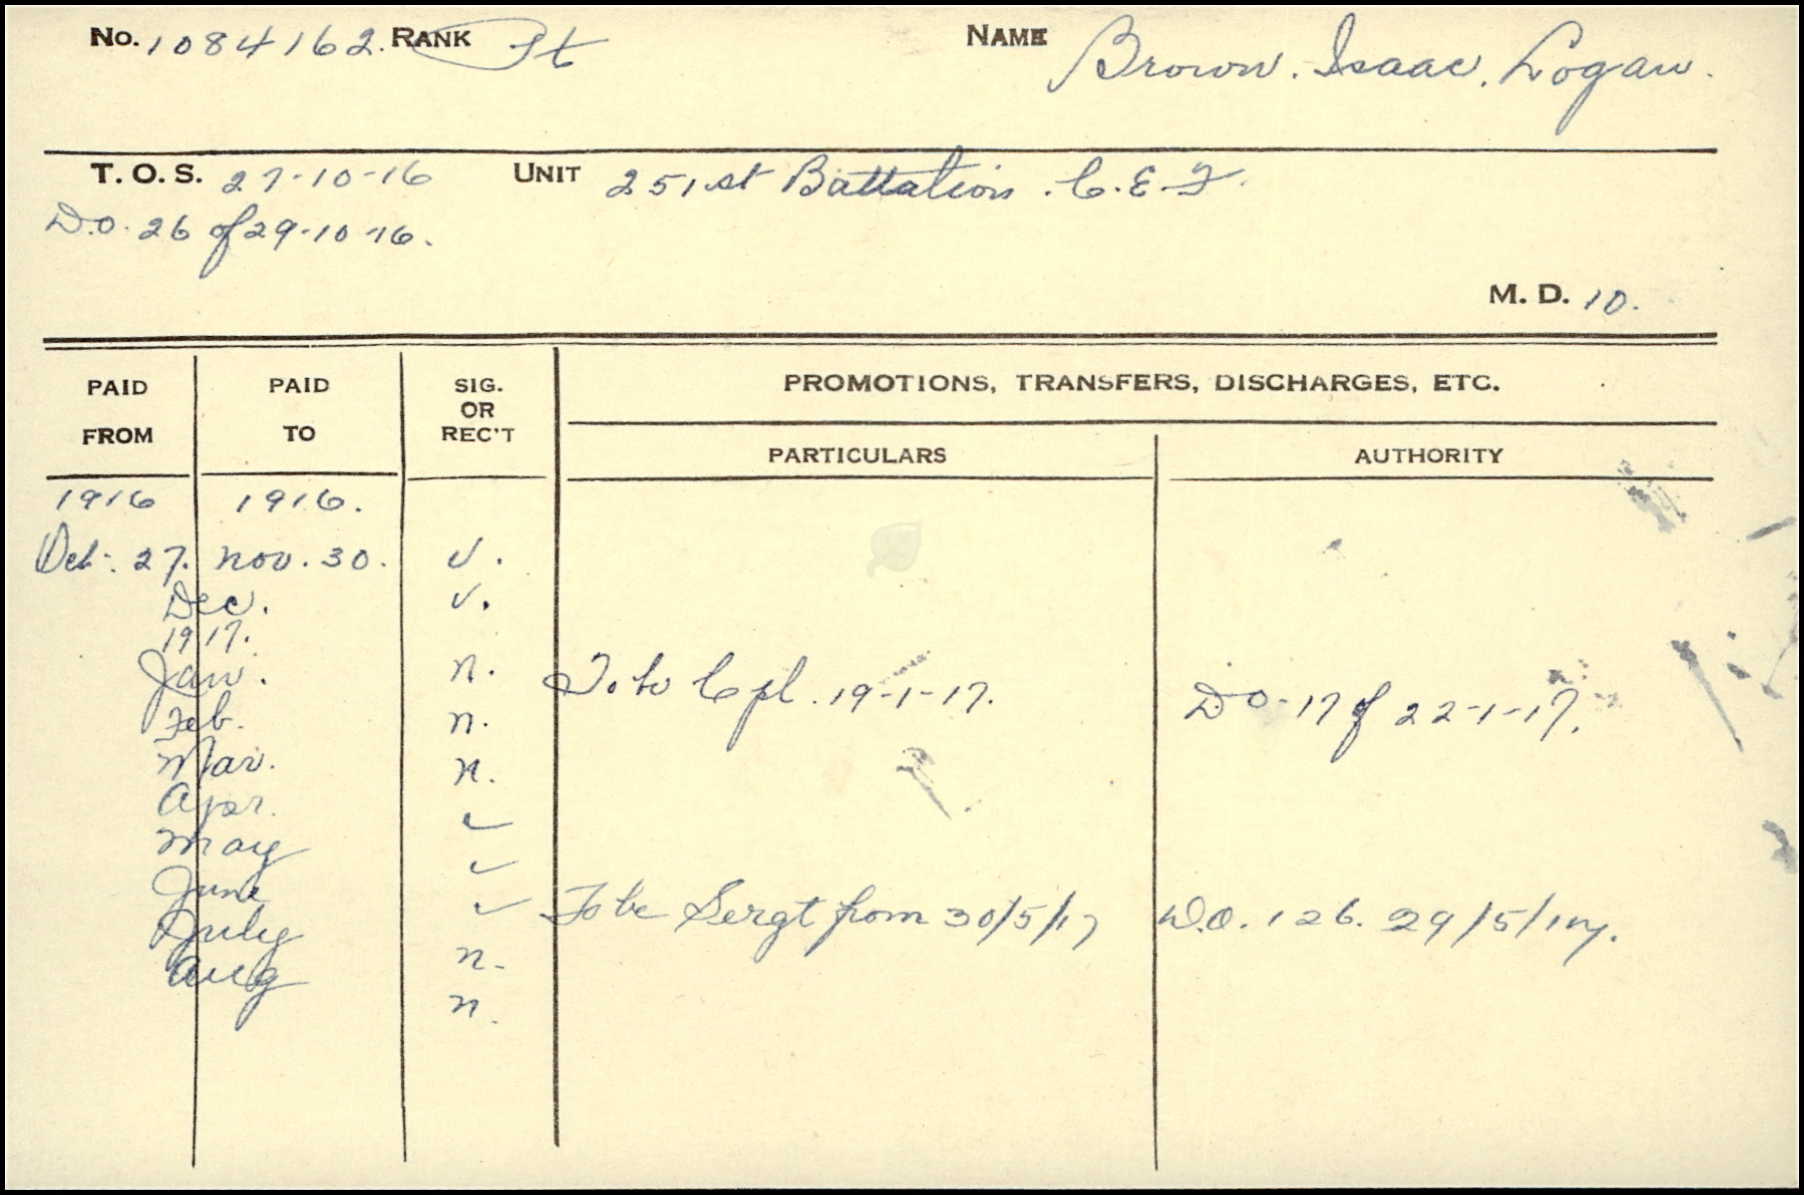 No. 1084162. RANK Pt NAME Brown. Isaac. Logan.
T. O. S. 27-10-16 UNIT 251st Battalion. C.E.F.
D.O. 26 of 29-10-16.
M. D. 10.
PAID FROM PAID TO SIG. OR REC'T PROMOTIONS, TRANSFERS, DISCHARGES, ETC.
PARTICULARS AUTHORITY
1916 1916.
Oct. 27. Nov. 30. v.
Dec. v.
1917.
Jan. n. To be Cpl. 19-1-17. DO-17 of 22-1-17.
Feb. n.
Mar. n.
Apr. ✓
May ✓
June ✓ To be Sergt from 30/5/17 D.O. 126. 29/5/17.
July n.
Aug n.